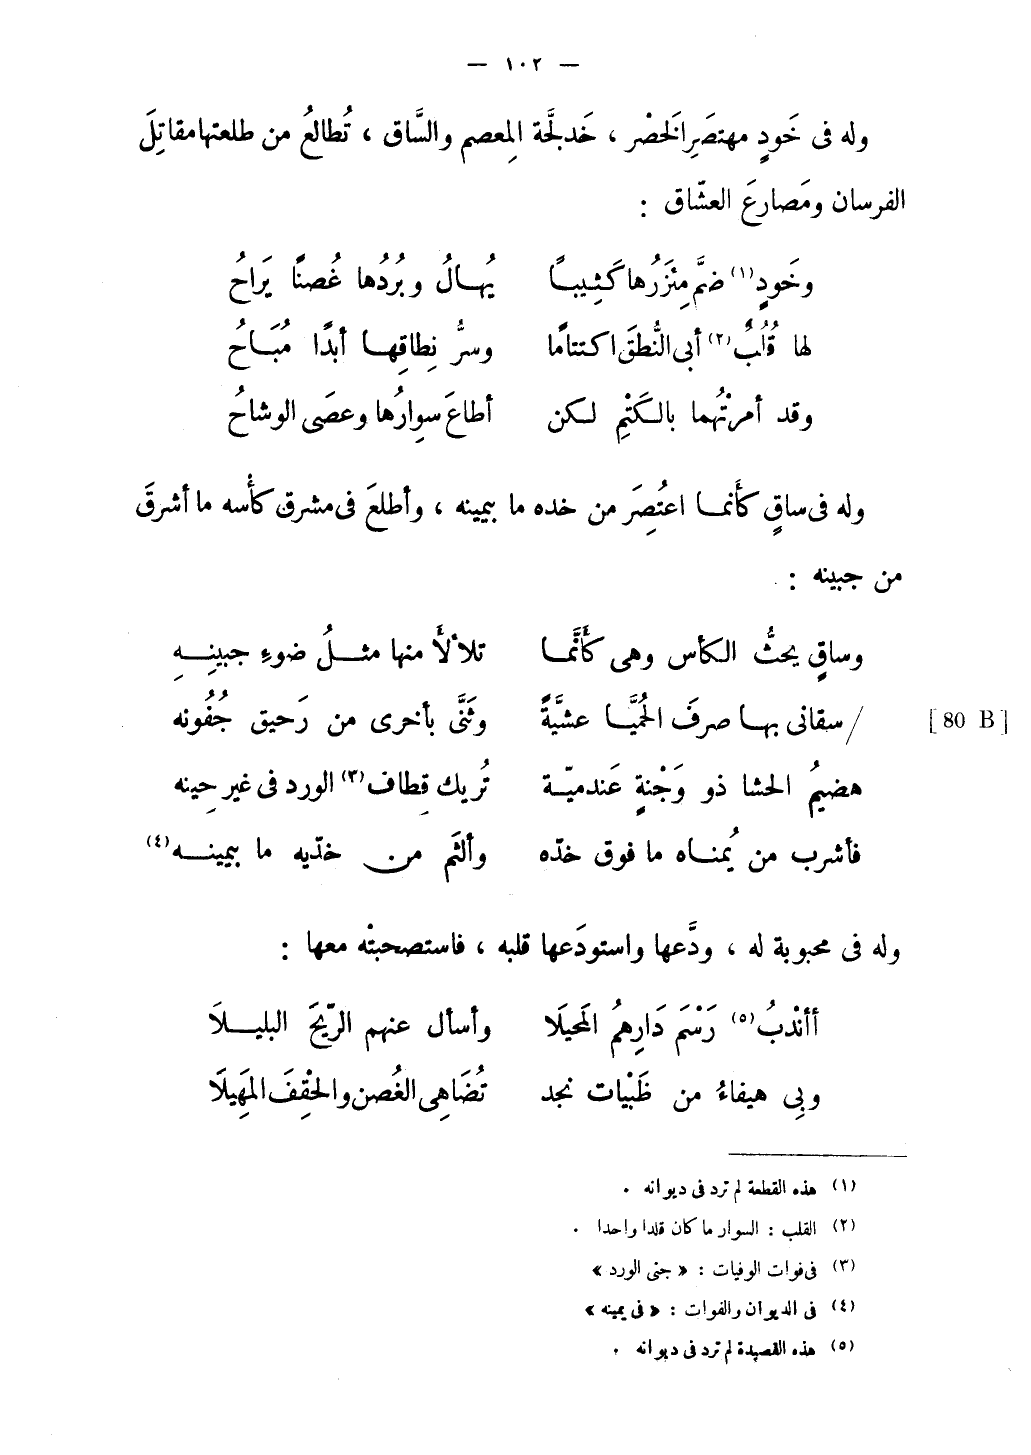 — ١٠٢ —
وله فى خَودٍ مهتصَرِ الخَصْر ، خَدلَّجة المِعصم والسَّاق ، تُطالعُ من طلعتها مقاتِلَ
الفرسان ومَصارعَ العشّاق :
وخَودٍ(١) ضمَّ مِئزَرُها كَثِيبًا يُهالُ وبُرُدُها غُصنًا يَراحُ
لها قُلُبٌ(٢) أبى النُّطقَ اكتتامًا وسرُّ نِطاقِها أبدًا مُبَاحُ
وقد أمرْتُهما بالكَتْمِ لكن أطاعَ سوِارُها وعصَى الوشاحُ
وله فى ساقٍ كأَنما اعتُصِرَ من خده ما بيمينه ، وأطلعَ فى مشرق كأْسه ما أشرقَ
من جبينه :
وساقٍ يحثُّ الكأس وهى كأَنَّما تلألأَ منها مثلُ ضوءِ جبينِهِ
/ سقانى بها صرفَ الحُميَّا عشيَّةً وثَنَّى بأخرى من رَحيق جُفُونه [80 B]
هضيمُ الحشا ذو وَجْنةٍ عَندميّة تُريك قِطاف(٣) الورد فى غير حِينه
فأشرب من يُمناه ما فوق خدّه وألثَم من خدّيه ما بيمينه(٤)
وله فى محبوبة له ، ودَّعها واستودَعها قلبه ، فاستصحبتْه معها :
أأنْدبُ(٥) رَسْمَ دَارِهمُ المَحيلَا وأسأل عنهم الرّيحَ البليلاَ
وبِى هيفاءُ من ظَبْيات نجد تُضَاهِى الغُصن والحْقِفَ المَهِيلَا
(١) هذه القطعة لم ترد فى ديوانه .
(٢) القلب : السوار ما كان قلدا واحدا .
(٣) فى فوات الوفيات : « جنى الورد »
(٤) فى الديوان والفوات : « فى يمينه »
(٥) هذه القصيدة لم ترد فى ديوانه .